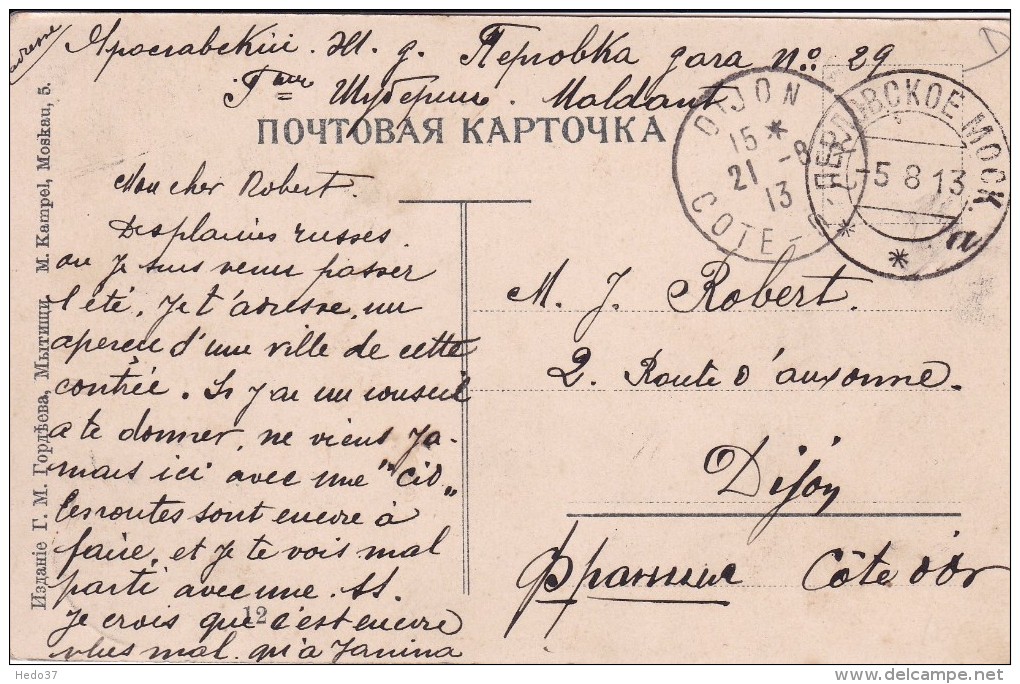 adresse
Ярославскій. Ж. д. Перловка дача №: 29
Шуберта. Maldant
ПОЧТОВАЯ КАРТОЧКА
DIJON
15 *
21 -8
13
COTE-D'
ПЕРЛОВСКОЕ МОСК.
-5 8 13
a
Mon cher Robert.
Des plaines russes.
ou je suis venu passer
l'été. Je t'adresse, un
aperçu d'une ville de cette
contrée. Si j'ai un conseil
a te donner, ne viens ja-
mais ici avec une "Cid"
les routes sont encore à
faire, et je te vois mal
parti avec une SS.
Je crois que c'est encore
plus mal. qu'a Janina
M. J. Robert.
2. Route d'auxonne.
Dijon
Франція Côte d'or
Изданіе Г. М. Гордѣева, Мытищи. M. Kampel, Moskau, 5.
12
Hedo37
delcampe.net